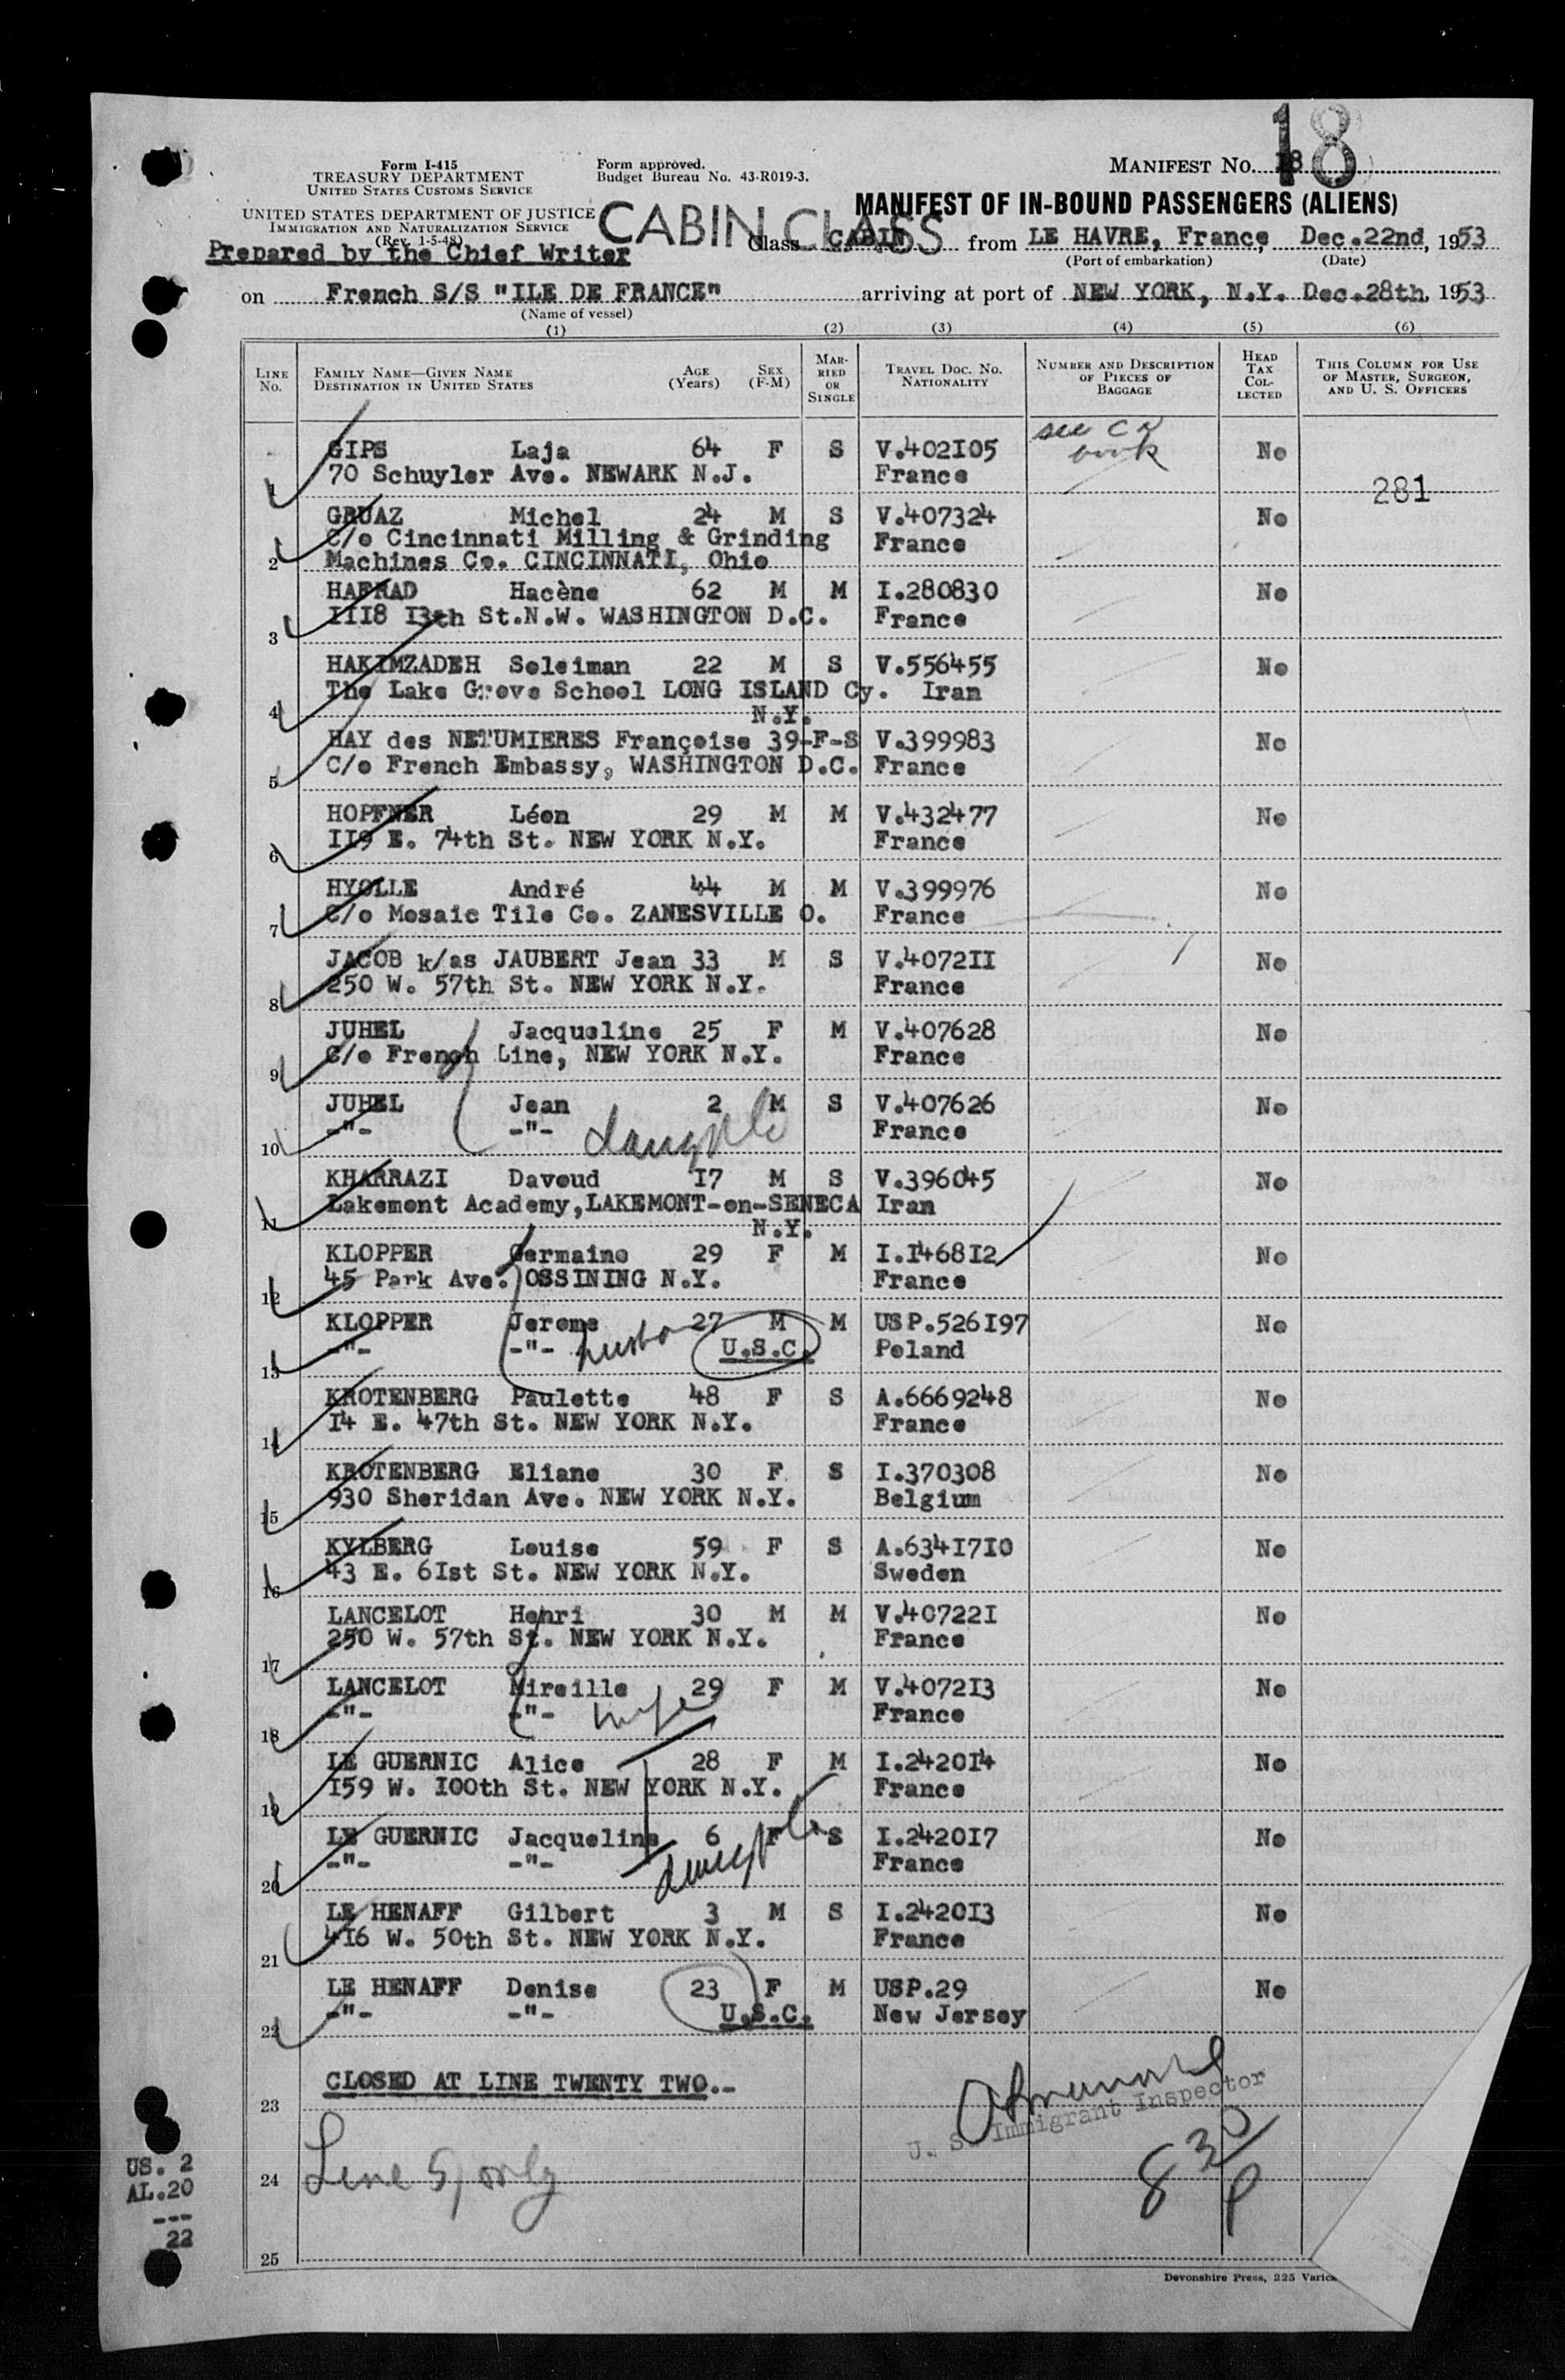 18
Form I-415
TREASURY DEPARTMENT
UNITED STATES CUSTOMS SERVICE
UNITED STATES DEPARTMENT OF JUSTICE
IMMIGRATION AND NATURALIZATION SERVICE
(Rev. 1-5-48)
Form approved.
Budget Bureau No. 43-R019-3.
MANIFEST NO. 18
MANIFEST OF IN-BOUND PASSENGERS (ALIENS)
CABIN CLASS
Prepared by the Chief Writer
Class CABIN from LE HAVRE, France, Dec.22nd, 1953
(Port of embarkation) (Date)
on French S/S "ILE DE FRANCE" arriving at port of NEW YORK, N.Y. Dec.28th, 1953
(Name of vessel)
(1) (2) (3) (4) (5) (6)
LINE No. FAMILY NAME—GIVEN NAME DESTINATION IN UNITED STATES AGE (Years) SEX (F-M) MARRIED OR SINGLE TRAVEL DOC. NO. NATIONALITY NUMBER AND DESCRIPTION OF PIECES OF BAGGAGE HEAD TAX COLLECTED THIS COLUMN FOR USE OF MASTER, SURGEON, AND U. S. OFFICERS
see
book
GIPS Laja 64 F S V.402I05 No
1 70 Schuyler Ave. NEWARK N.J. France
281
GRUAZ Michel 24 M S V.407324 No
C/o Cincinnati Milling & Grinding France
2 Machines Co. CINCINNATI, Ohio
HAFRAD Hacène 62 M M I.280830 No
3 III8 I3th St.N.W. WASHINGTON D.C. France
HAKIMZADEH Soleiman 22 M S V.556455 No
The Lake Grove School LONG ISLAND Cy. Iran
4 N.Y.
HAY des NETUMIERES Françoise 39-F-S V.399983 No
5 C/o French Embassy, WASHINGTON D.C. France
HOPFNER Léon 29 M M V.432477 No
6 II9 E. 74th St. NEW YORK N.Y. France
HYOLLE André 44 M M V.399976 No
7 C/o Mosaic Tile Co. ZANESVILLE O. France
JACOB k/as JAUBERT Jean 33 M S V.4072II No
8 250 W. 57th St. NEW YORK N.Y. France
JUHEL Jacqueline 25 F M V.407628 No
9 C/o French Line, NEW YORK N.Y. France
JUHEL Jean 2 M S V.407626 No
10 -"- -"- France
KHARRAZI Davoud I7 M S V.396045 No
11 Lakemont Academy,LAKEMONT-on-SENECA Iran
N.Y.
KLOPPER Germaine 29 F M I.I468I2 No
12 45 Park Ave. OSSINING N.Y. France
KLOPPER Jerome 27 M M USP.526I97 No
13 -"- -"- U.S.C. Poland
KROTENBERG Paulette 48 F S A.6669248 No
14 I4 E. 47th St. NEW YORK N.Y. France
KROTENBERG Eliane 30 F S I.370308 No
15 930 Sheridan Ave. NEW YORK N.Y. Belgium
KYLBERG Louise 59 F S A.634I7I0 No
16 43 E. 6Ist St. NEW YORK N.Y. Sweden
LANCELOT Henri 30 M M V.40722I No
17 250 W. 57th St. NEW YORK N.Y. France
LANCELOT Mireille 29 F M V.4072I3 No
18 -"- -"- wife France
LE GUERNIC Alice 28 F M I.2420I4 No
19 I59 W. I00th St. NEW YORK N.Y. France
LE GUERNIC Jacqueline 6 F S I.2420I7 No
20 -"- -"- France
LE HENAFF Gilbert 3 M S I.2420I3 No
21 4I6 W. 50th St. NEW YORK N.Y. France
LE HENAFF Denise 23 F M USP.29 No
22 -"- -"- U.S.C. New Jersey
CLOSED AT LINE TWENTY TWO.-
23
U. S. Immigrant Inspector
24 Line 5, only
830
P
US. 2
AL.20
---
22
25
Devonshire Press, 225 Varick